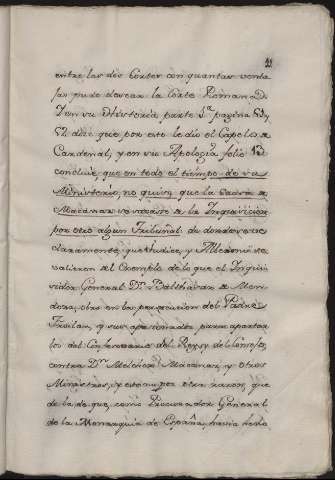 11
entre las dos Cortes con quantas venta
jas pudo desear la Corte Romana.
Y en su Historia parte 1ª pagina 61 y
62 dice que por esto le dio el Capelo de
Cardenal, y en su Apologia folio 12
concluie que en todo el tiempo de su
Ministerio, no quiso que la causa de
Macanaz se sacase de la Inquisicion
por otro algun Tribunal de donde se ve
claramente, que Judice, y Alberoni se
valieron del Exemplo de lo que el Inqui
sidor General Dn. Balthasar de Men
doza, obro en la persecucion del Padre
Froilan, y sus apasionados para apartar
los del Confesonario del Rey, y del Consejo,
contra Dn. Melchor Macanaz, y otros
Ministros, y esto no por otra razon, que
de la de que, como Procurador General
de la Monarquia de España, havia